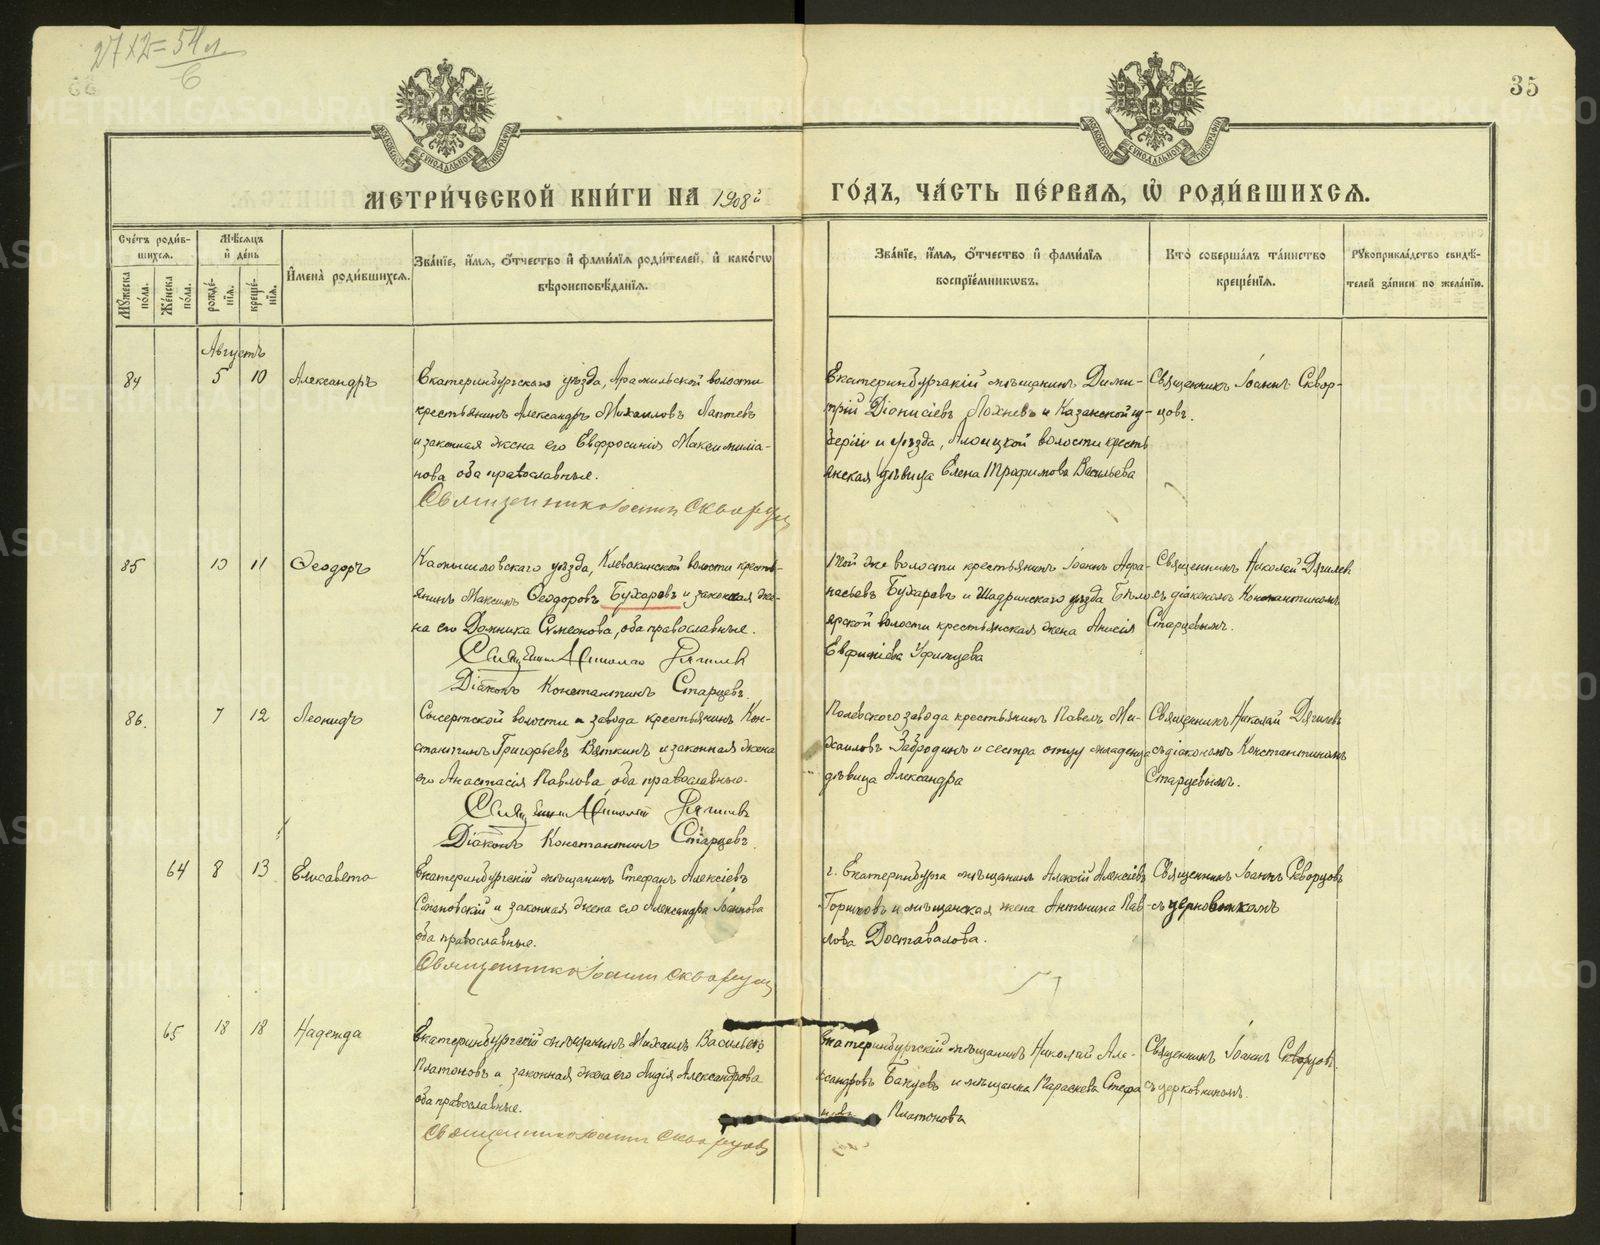 27х2=54 л.
6
35
МОСКОВСКОЙ СУНОДАЛЬНОЙ ТИПОГРАФІИ
МОСКОВСКОЙ СУНОДАЛЬНОЙ ТИПОГРАФІИ
МЕТРИ́ЧЕСКОЙ КНИ́ГИ НА 1908й ГО́ДЪ, ЧА́СТЬ ПЕ́РВАЯ, Ѿ РОДИ́ВШИХСЯ.
Счетъ роди́в-
шихся.
Мꙋжеска по́ла.
Же́нска по́ла.
Мѣ́сяцъ
и҆ де́нь
рожде́нїя.
креще́нїя.
И҆мена̀ роди́вшихся.
Зва́нїе, и҆́мя, ѻ҆́тчество и҆ фами́лїя роди́телей, и҆ како́гѡ
вѣроисповѣ́данїя.
Зва́нїе, и҆́мя, ѻ҆́тчество и҆ фами́лїя
воспрїе́мникѡвъ.
Кто̀ соверша́лъ та́инство
креще́нїя.
Рꙋкоприкла́дство свидѣ́-
телей за́писи по жела́нїю.
Августъ
84 5 10 Александръ
Екатеринбургскаго уѣзда, Арамильской волости
крестьянинъ Александръ Михаиловъ Лаптевъ
и законная жена его Евфросинія Максимиліа-
нова оба православные.
Священникъ Іоаннъ Скворцовъ
Екатеринбургскій мѣщанинъ Дими-
трій Діонисіевъ Лохневъ и Казанской гу-
берніи и уѣзда, волости кресть
янская дѣвица Елена Трофимова Васильева
Священникъ Іоаннъ Сквор-
цовъ.
85 10 11 Ѳеодоръ
Камышловскаго уѣзда, Клевакинской волости кресть-
янинъ Максимъ Ѳеодоровъ Бухаровъ и законная же-
на его Домника Симеонова, оба православные.
Священникъ Николай Дягилевъ
Діаконъ Константинъ Старцевъ.
Той же волости крестьянинъ Іоаннъ Аѳа-
насьевъ Бухаровъ и Шадринскаго уѣзда Бѣло
ярской волости крестьянская жена Анисія
Евфиміева Уфимцева
Священникъ Николай Дягилев
съ діакономъ Константиномъ
Старцевымъ.
86. 7 12 Леонидъ
Сысертской волости и завода крестьянинъ Кон-
стантинъ Григорьевъ Вяткинъ и законная жена
его Анастасія Павлова, оба православные.
Священникъ Николай Дягилевъ
Діаконъ Константинъ Старцевъ.
Полевского завода крестьянинъ Павелъ Ми-
хаиловъ Забродинъ и сестра отцу младенца
дѣвица Александра
Священникъ Николай Дягилевъ
съ діакономъ Константиномъ
Старцевымъ.
64 8 13 Елисавета
Екатеринбургскій мѣщанинъ Стефанъ Алексіевъ
и законная жена его Александра Іоаннова
оба православные.
Священникъ Іоаннъ Скворцовъ
г. Екатеринбурга мѣщанинъ Алексій Алексіевъ
и мѣщанская жена Антонина Пав-
лова Доставалова.
Священникъ Іоаннъ Скворцовъ
съ церковникомъ
65 18 18 Надежда
Екатеринбургскій мѣщанинъ Михаилъ Васильевъ
Платоновъ и законная жена его Лидія Александрова
оба православные.
Священникъ Іоаннъ Скворцовъ
Екатеринбургскій мѣщанинъ Николай Але-
ксандровъ Бакуовъ и мѣщанка Параскева Стефа
нова Платонова
Священникъ Іоаннъ Скворцовъ
съ церковникомъ.
METRIKI.GASO-URAL.RU